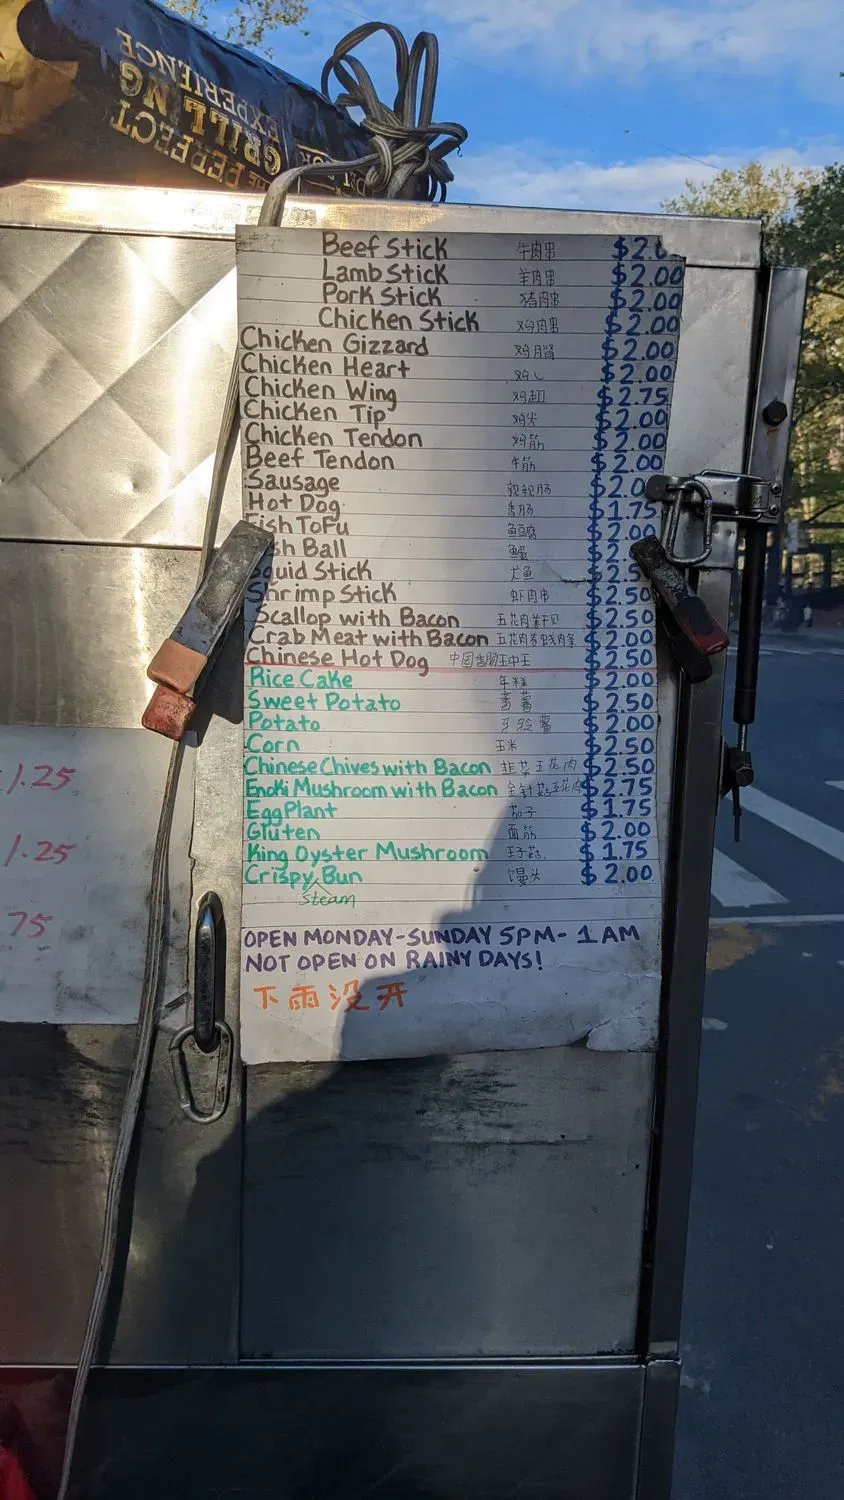 THE PERFECT
GRILLING
EXPERIENCE
Beef Stick 牛肉串
Lamb Stick 羊肉串 $2.00
Pork Stick 猪肉串 $2.00
Chicken Stick 鸡肉串 $2.00
Chicken Gizzard $2.00
Chicken Heart 鸡心 $2.00
Chicken Wing 鸡翅 $2.75
Chicken Tip 鸡尖 $2.00
Chicken Tendon 鸡筋 $2.00
Beef Tendon 牛筋 $2.00
Sausage
Hot Dog 香肠 $1.75
Fish Tofu 鱼豆腐 $2.00
Ball
Squid Stick
Shrimp Stick 虾肉串 $2.50
Scallop with Bacon $2.50
Crab Meat with Bacon $2.00
Chinese Hot Dog 中国香肠王中王 $2.50
Rice Cake 年糕 $2.00
Sweet Potato 蕃薯 $2.50
Potato $2.00
Corn 玉米 $2.50
Chinese Chives with Bacon 韭菜五花肉 $2.50
Enoki Mushroom with Bacon $2.75
EggPlant 茄子 $1.75
Gluten 面筋 $2.00
King Oyster Mushroom $1.75
Crispy Bun 馒头 $2.00
Steam
OPEN MONDAY-SUNDAY 5PM-1AM
NOT OPEN ON RAINY DAYS!
下雨没开
1.25
1.25
75